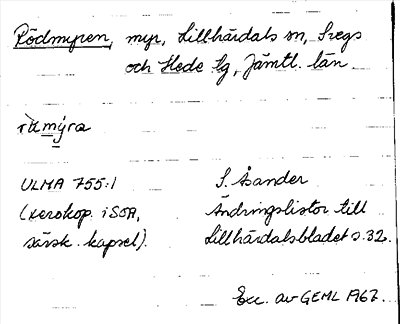 Rödmyren, myr, Lillhärdals sn, Svegs
och Hede tg, Jämtl. län.
mýra
ULMA 755:1
(xerokop. i SOA,
särsk. kapsel).
S. Åsander
Ändringslistor till
Lillhärdalsbladet s. 32.
Exc. av GEML 1967.